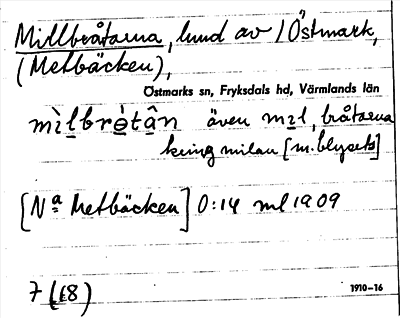 Millbråtarna, lund av / Östmark,
(Metbäcken),
Östmarks sn, Fryksdals hd, Värmlands län
mìlbrètân även mil, bråtarna
kring milan [m. blyerts]
[Nª Metbäcken] 0:14 ml 1909
7 (18)
1910–16